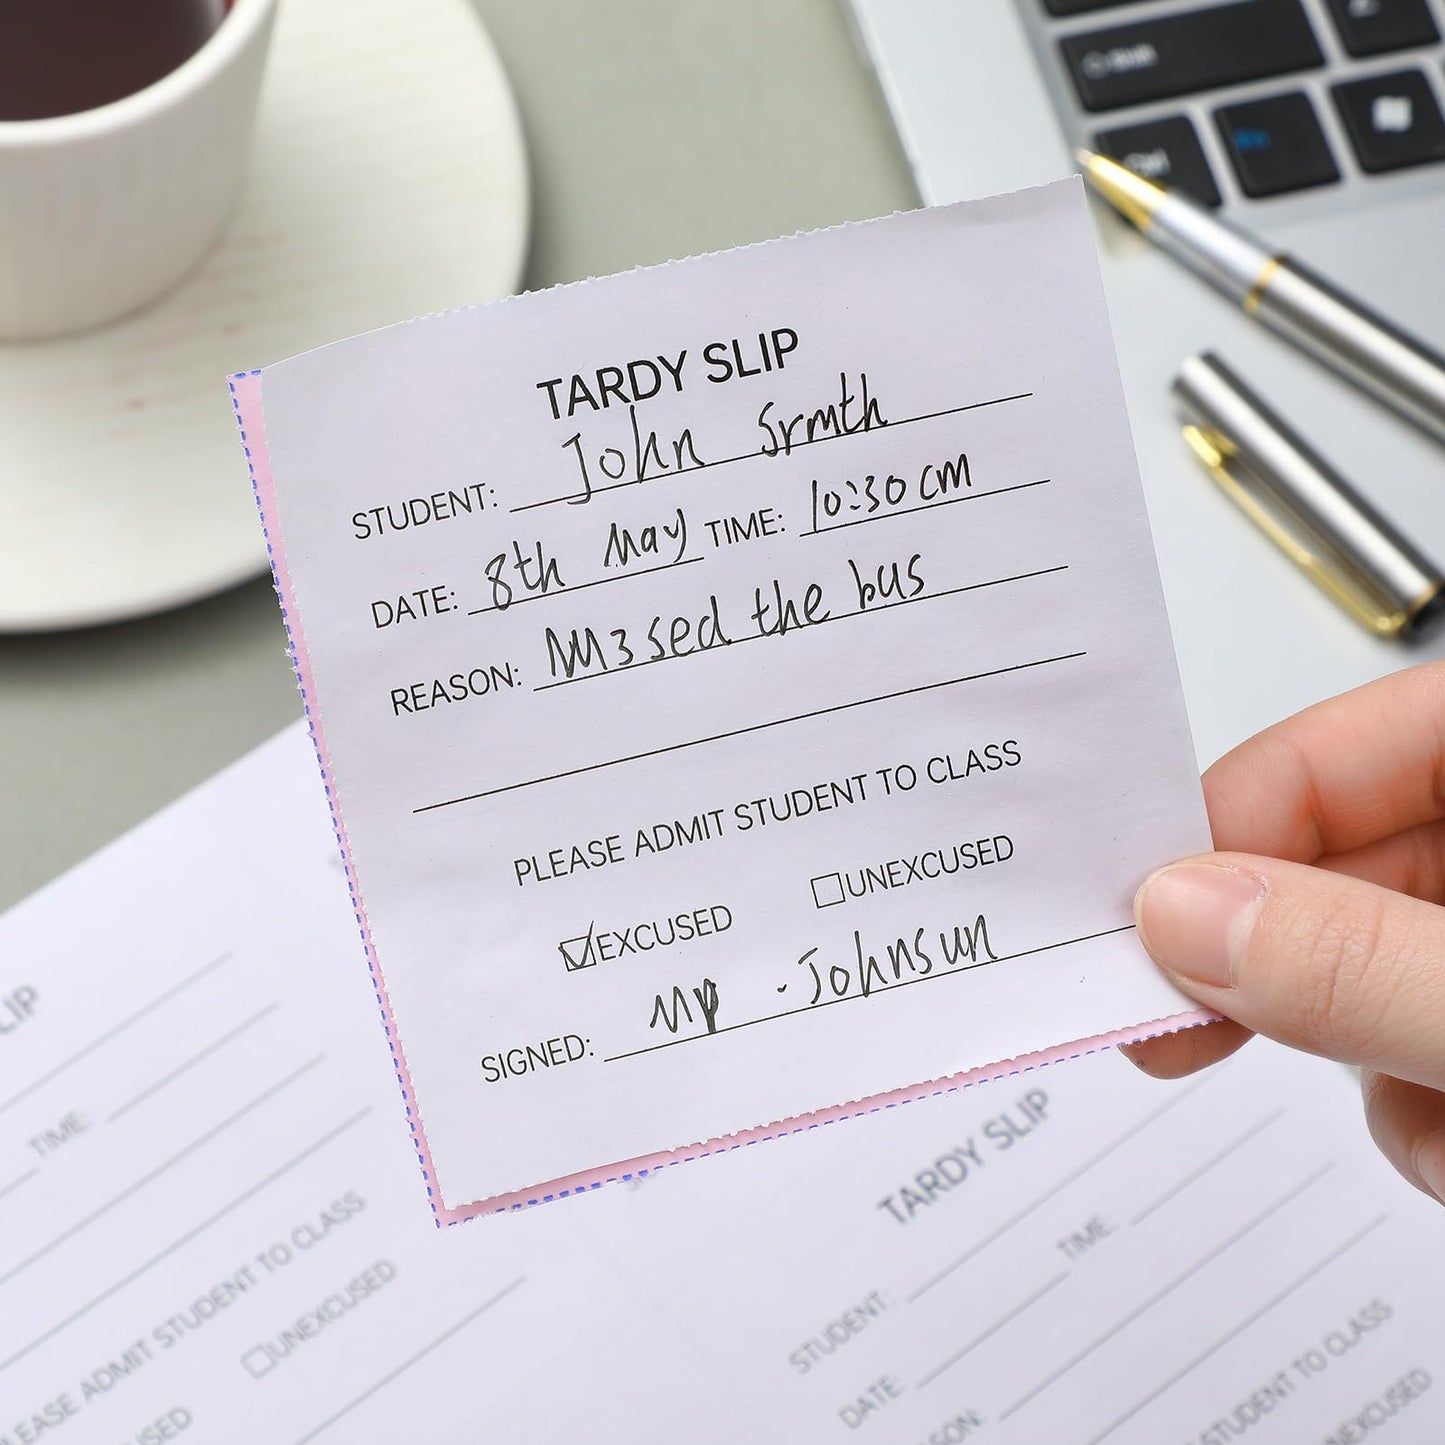 Shift
Ctrl
Fn
TARDY SLIP
STUDENT: John Srmth
DATE: 8th May TIME: 10:30 cm
REASON: M3sed the bus
PLEASE ADMIT STUDENT TO CLASS
☑EXCUSED ☐UNEXCUSED
SIGNED: Mp . Johnsun
LIP
TIME:
LEASE ADMIT STUDENT TO CLASS
☐UNEXCUSED
SED
TARDY SLIP
STUDENT:
TIME:
DATE:
SON:
STUDENT TO CLASS
UNEXCUSED